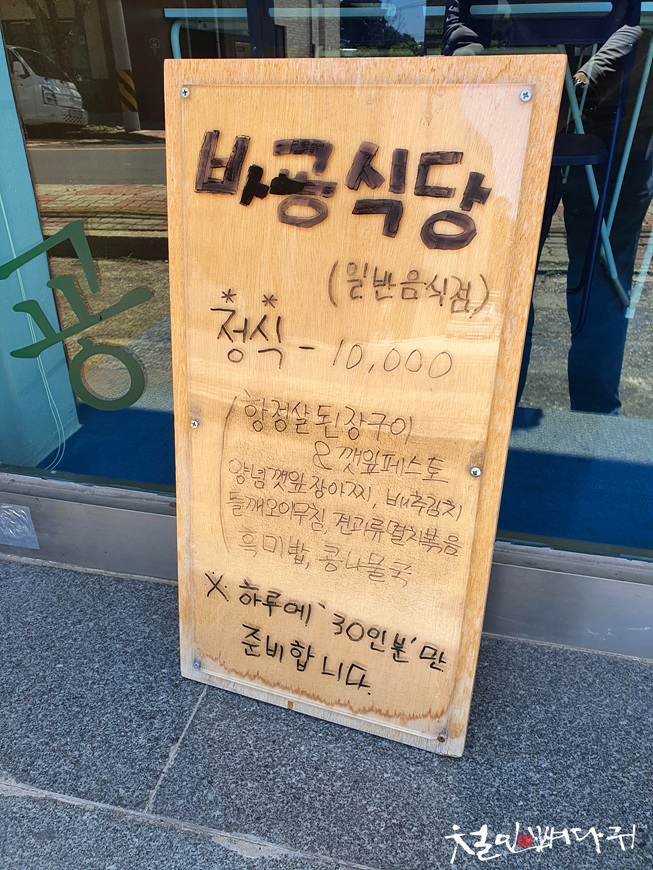 바공식당
(일반음식점)
**
정식 - 10,000
항정살 된장구이
& 깻잎페스토
양념깻잎장아찌, 배추김치
들깨오이무침, 견과류멸치볶음
흑미밥, 콩나물국
※ 하루에 '30인분'만
준비합니다.
공
철민뼈다귀